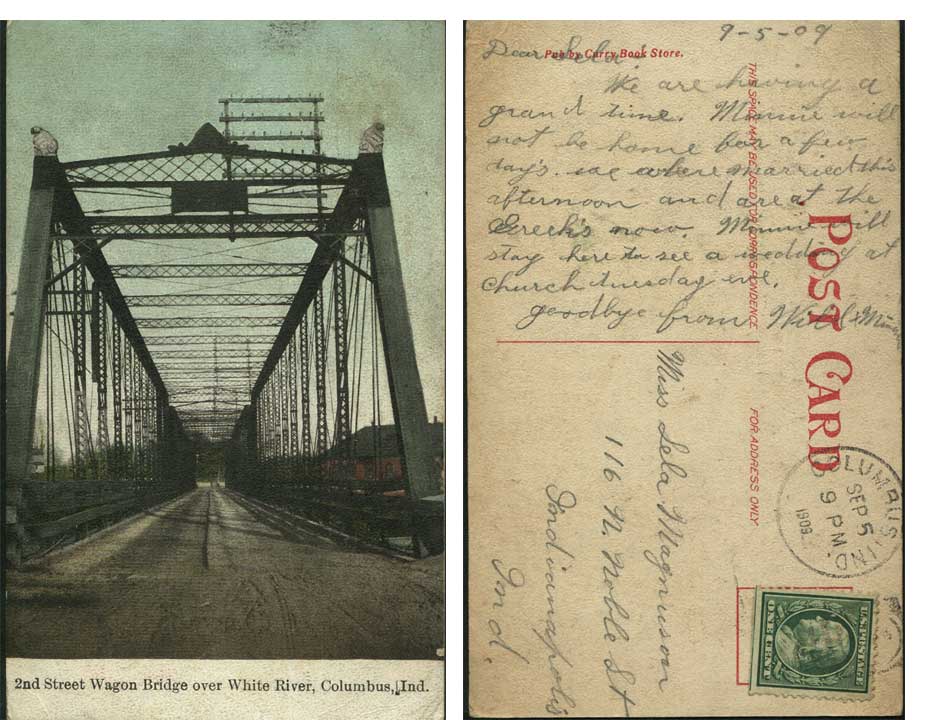 2nd Street Wagon Bridge over White River, Columbus, Ind.
9-5-09
Pub by Curry Book Store.
Dear Lela:
We are having a
grand time. Minnie will
not be home for a few
day's. we where married this
afternoon and are at the
now. Minnie will
stay here to see a wedding at
church tuesday eve.
goodbye from Will & Minnie
THIS SPACE MAY BE USED FOR CORRESPONDENCE
POST CARD
FOR ADDRESS ONLY
Miss Lela Magnuson
116 N. Noble St
Indianapolis
Ind.
COLUMBUS, IND.
SEP 5
9 PM.
1909
U.S. POSTAGE
ONE CENT